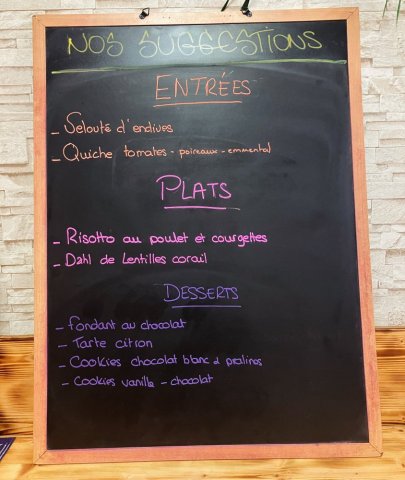 NOS SUGGESTIONS
ENTRÉES
- Velouté d'endives
- Quiche tomates - poireaux - emmental
PLATS
- Risotto au poulet et courgettes
- Dahl de Lentilles corail
DESSERTS
- Fondant au chocolat
- Tarte citron
- Cookies chocolat blanc & pralines
- Cookies vanille - chocolat